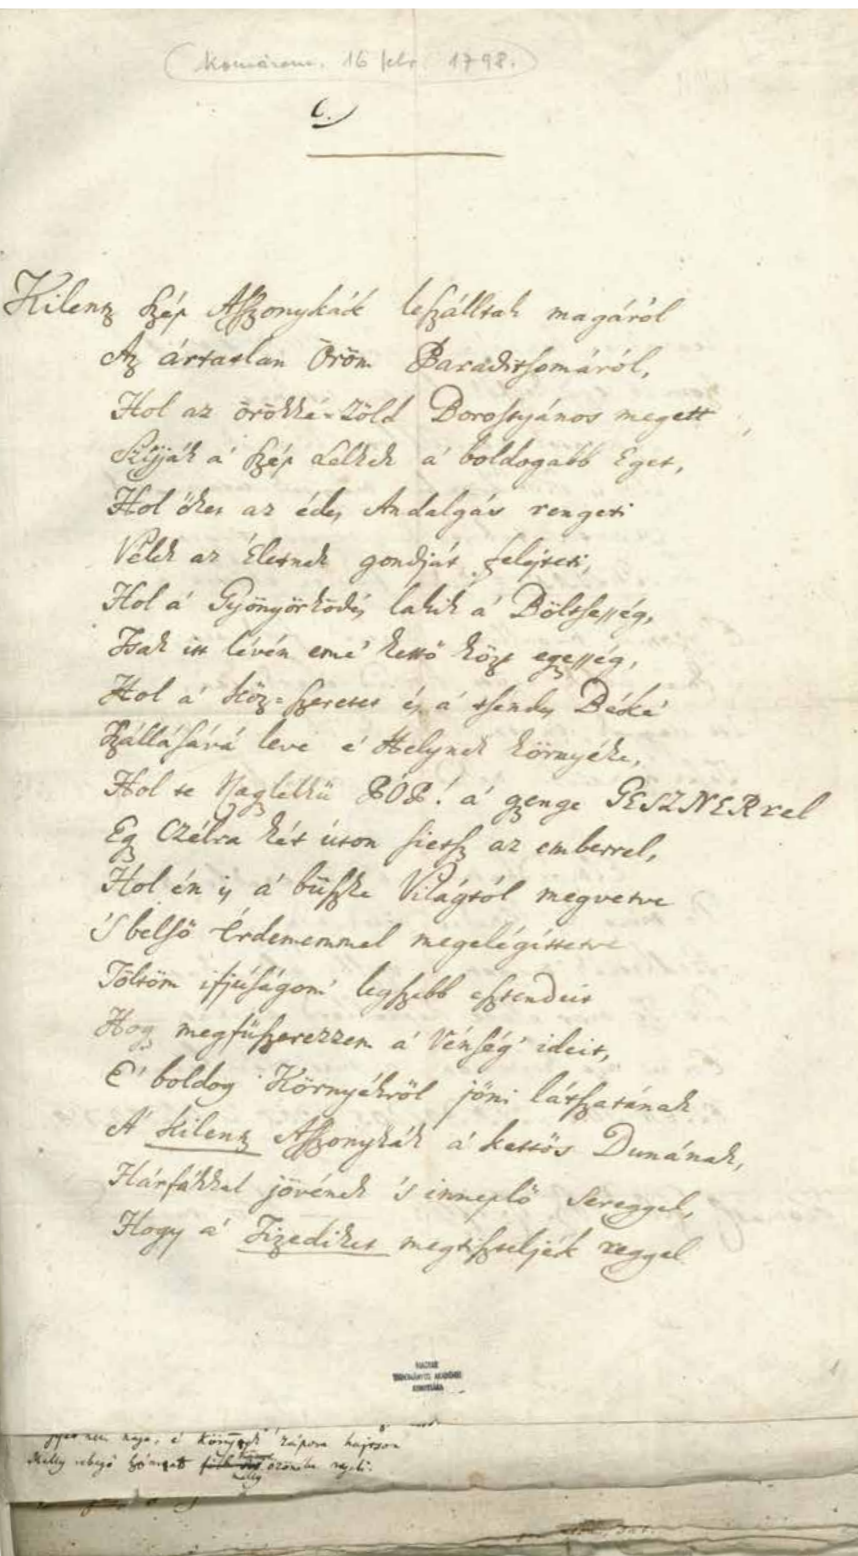 Komárom. 16 febr. 1798.
6.)
Kilencz szép Aszszonykák leszálltak magáról
Az ártatlan Öröm Paraditsomáról,
Hol az örökké-zöld Borostyános megett
Szíjják a' szép Lelkek a' boldogabb Eget,
Hol őket az édes Andalgás rengeti
Vélek az Életnek gondját felejteti,
Hol a' Gyönyörködés lakik a' Böltsesség,
Tsak itt lévén emé' kettő közt egyesség,
Hol a' Köz-szeretet és a' tsendes Béké
Szállásává leve e' Helynek környéke,
Hol te Nagylelkű POP! a' gyenge GESZNERrel
Egy Czélra két úton sietsz az emberrel,
Hol én is a' büszke Világtól megvetve
's belső Érdememmel megelégíttetve
Töltöm ifjúságom' legszebb esztendeit
Hogy megfűszerezzem a' Vénség' ideit,
E' boldog Környékről jőni látszatának
A' Kilencz Aszszonykák a' kettős Dunának,
Hárfákkal jövének 's inneplő Sereggel,
Hogy a' Tizediket megtiszteljék reggel
MAGYAR
TUDOMÁNYOS AKADÉMIA
KÖNYVTÁRA
nem e' Könnyek' zápora hajtson
Melly rebegő
melly